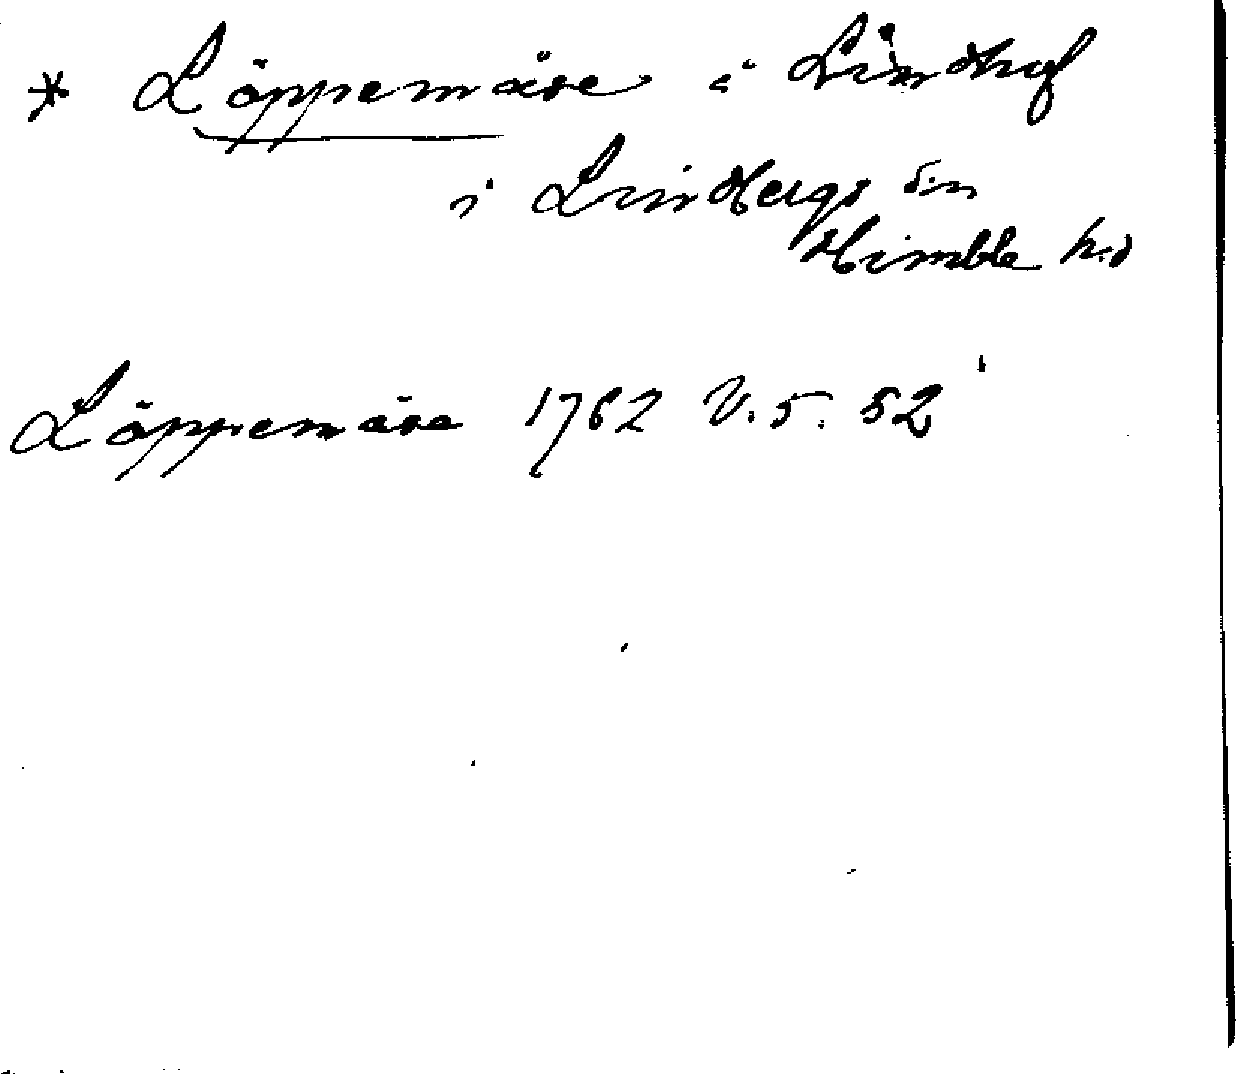 * Löppemåse i Lindhof
i Lindbergs sn
Himble hd
Löppemåse 1762 V. 5. 52